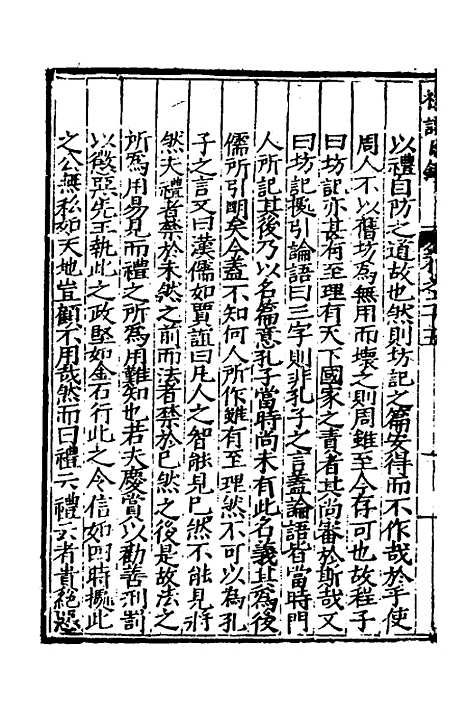 以禮自防之道故也然則坊記之篇安得而不作哉於乎使
周人不以舊坊為無用而壞之則周雖至今存可也故程子
曰坊記亦甚有至理有天下國家之責者其尚審於斯哉又
曰坊記援引論語曰三字則非孔子之言蓋論語皆當時門
人所記其後乃以名篇意孔子當時尚未有此名義其為後
儒所引明矣今盖不知何人所作雖有至理然不可以為孔
子之言又曰漢儒如賈誼曰凡人之智能見已然不能見將
然夫禮者禁於未然之前而法者禁於已然之後是故法之
所為用易見而禮之所為用難知也若夫慶賞以勸善刑罰
以懲惡先王執此之政堅如金石行此之令信如四時據此
之公無私如天地豈顧不用哉然而曰禮云禮云者貴絕惡